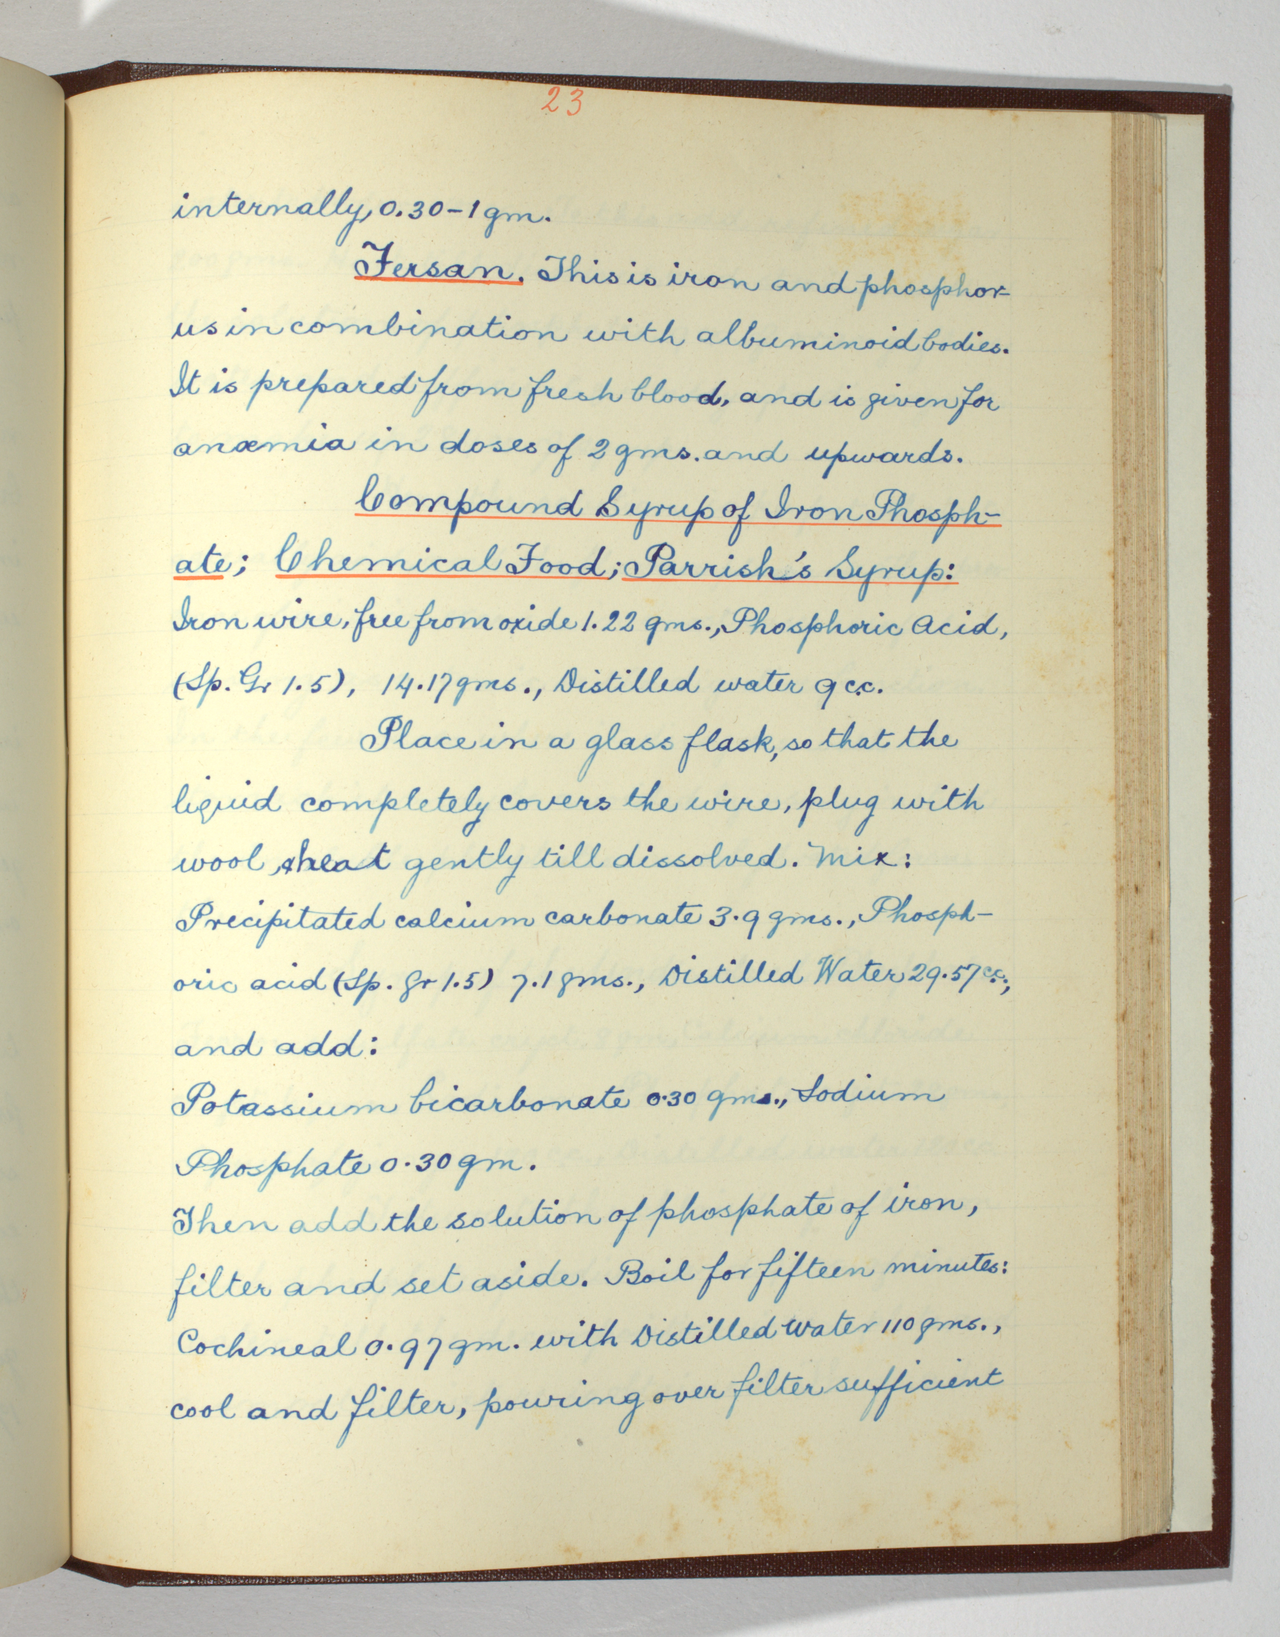 23
internally, 0.30-1 gm.
Fersan. This is iron and phosphor-
us in combination with albuminoid bodies.
It is prepared from fresh blood, and is given for
anæmia in doses of 2 gms. and upwards.
Compound Syrup of Iron Phosph-
ate; Chemical Food; Parrish's Syrup:
Iron wire, free from oxide 1.22 gms., Phosphoric Acid,
(Sp. Gr 1.5), 14.17 gms., Distilled water 9 c.c.
Place in a glass flask, so that the
liquid completely covers the wire, plug with
wool, & heat gently till dissolved. Mix:
Precipitated calcium carbonate 3.9 gms., Phosph-
oric acid (Sp. gr 1.5) 7.1 gms., Distilled Water 29.57 c.c.,
and add:
Potassium bicarbonate 0.30 gms., Sodium
Phosphate 0.30 gm.
Then add the solution of phosphate of iron,
filter and set aside. Boil for fifteen minutes:
Cochineal 0.97 gm. with Distilled water 110 gms.,
cool and filter, pouring over filter sufficient